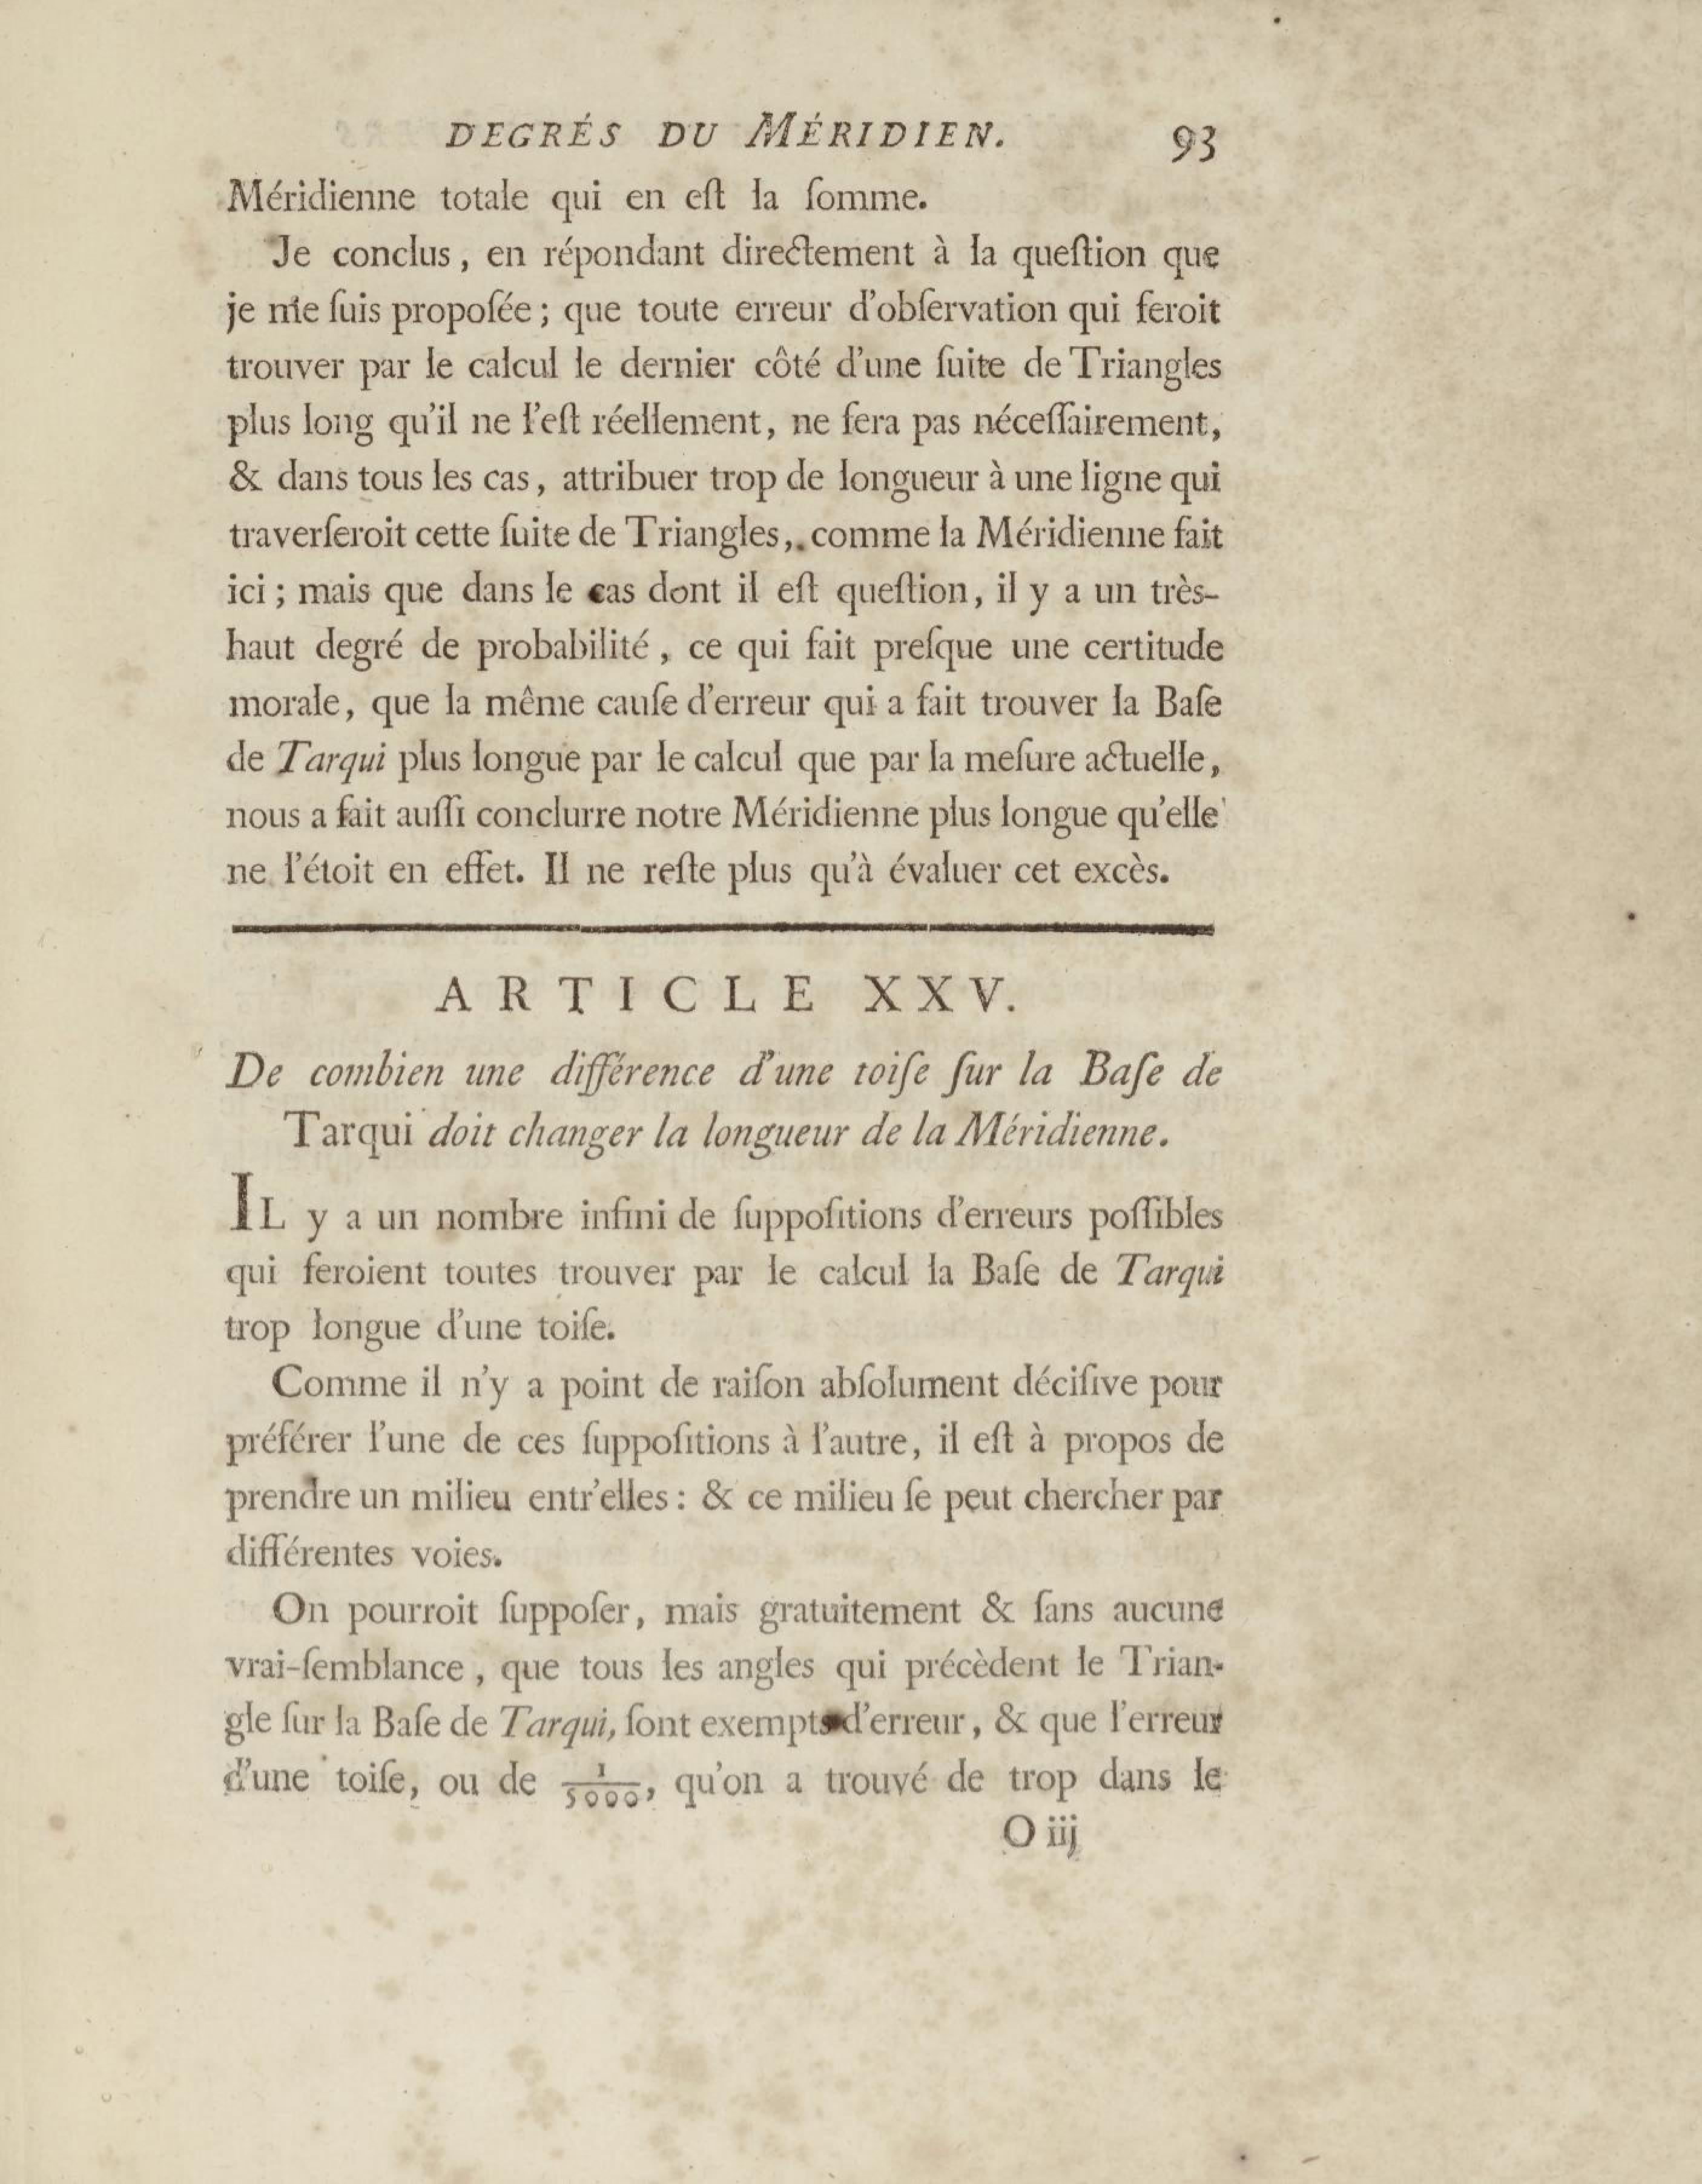 DEGRÉS DU MÉRIDIEN. 93
Méridienne totale qui en eſt la ſomme.
Je conclus, en répondant directement à la queſtion que
je me ſuis propoſée; que toute erreur d'obſervation qui feroit
trouver par le calcul le dernier côté d'une ſuite de Triangles
plus long qu'il ne l'eſt réellement, ne fera pas néceſſairement,
& dans tous les cas, attribuer trop de longueur à une ligne qui
traverſeroit cette ſuite de Triangles, comme la Méridienne fait
ici; mais que dans le cas dont il eſt queſtion, il y a un très-
haut degré de probabilité, ce qui fait preſque une certitude
morale, que la même cauſe d'erreur qui a fait trouver la Baſe
de Tarqui plus longue par le calcul que par la meſure actuelle,
nous a fait auſſi conclurre notre Méridienne plus longue qu'elle
ne l'étoit en effet. Il ne reſte plus qu'à évaluer cet excès.
ARTICLE XXV.
De combien une différence d'une toiſe ſur la Baſe de
Tarqui doit changer la longueur de la Méridienne.
IL y a un nombre infini de ſuppoſitions d'erreurs poſſibles
qui feroient toutes trouver par le calcul la Baſe de Tarqui
trop longue d'une toiſe.
Comme il n'y a point de raiſon abſolument déciſive pour
préférer l'une de ces ſuppoſitions à l'autre, il eſt à propos de
prendre un milieu entr'elles: & ce milieu ſe peut chercher par
différentes voies.
On pourroit ſuppoſer, mais gratuitement & ſans aucune
vrai-ſemblance, que tous les angles qui précèdent le Trian-
gle ſur la Baſe de Tarqui, ſont exempts d'erreur, & que l'erreur
d'une toiſe, ou de 1/5000, qu'on a trouvé de trop dans le
O iij